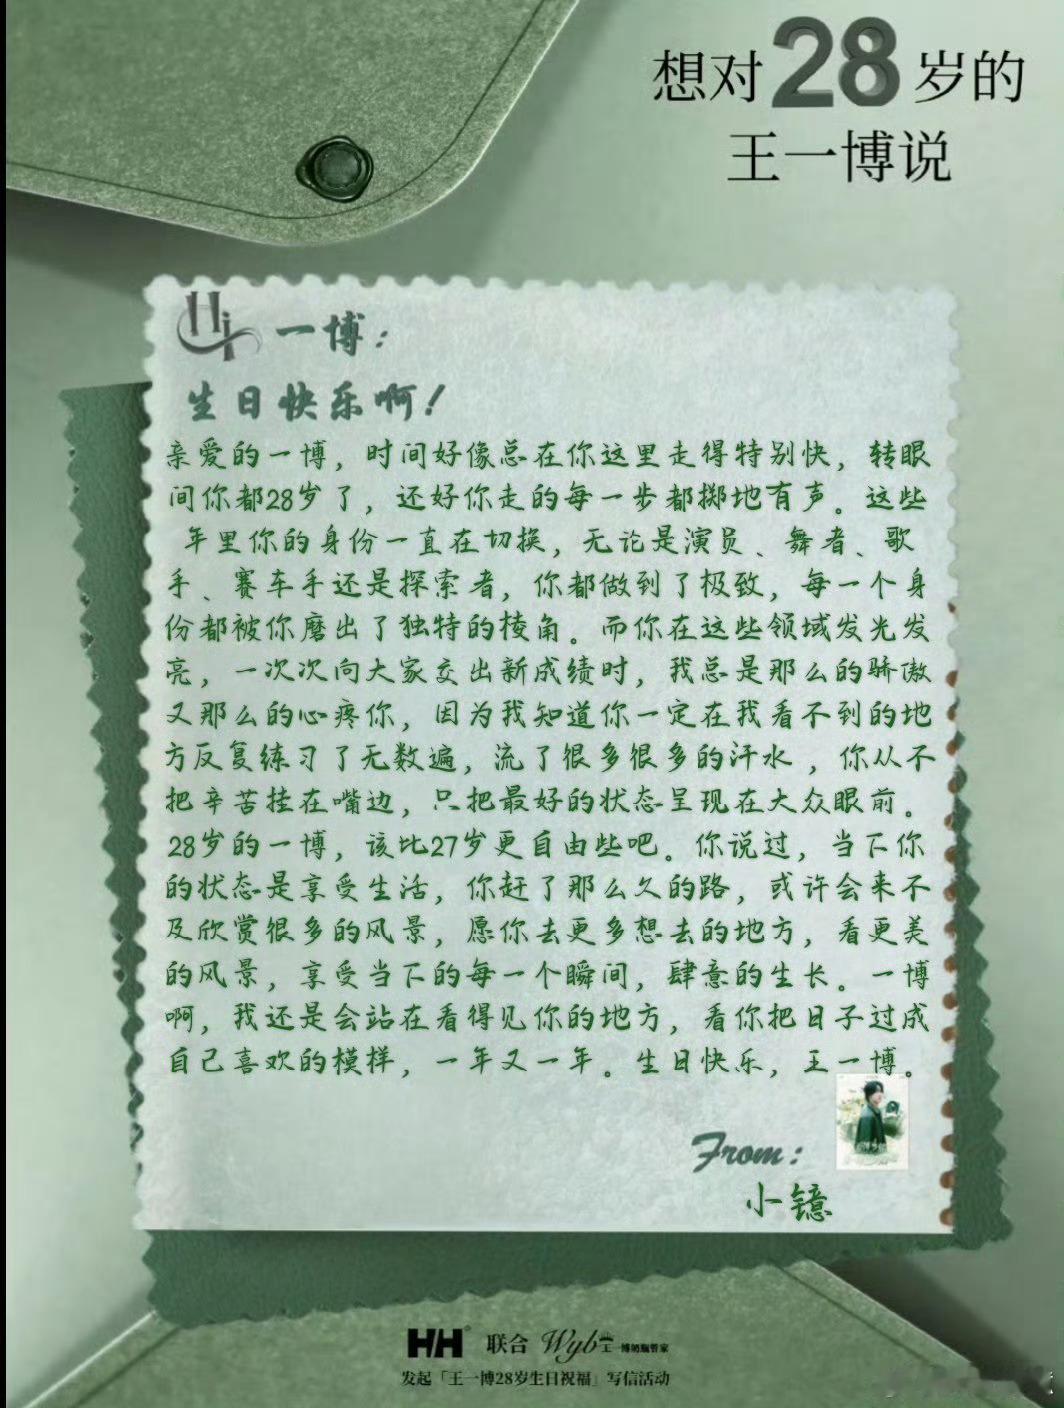 想对28岁的
王一博说
Hi 一博：
生日快乐啊！
亲爱的一博，时间好像总在你这里走得特别快，转眼
间你都28岁了，还好你走的每一步都掷地有声。这些
年里你的身份一直在切换，无论是演员、舞者、歌
手、赛车手还是探索者，你都做到了极致，每一个身
份都被你磨出了独特的棱角。而你在这些领域发光发
亮，一次次向大家交出新成绩时，我总是那么的骄傲
又那么的心疼你，因为我知道你一定在我看不到的地
方反复练习了无数遍，流了很多很多的汗水，你从不
把辛苦挂在嘴边，只把最好的状态呈现在大众眼前。
28岁的一博，该比27岁更自由些吧。你说过，当下你
的状态是享受生活，你赶了那么久的路，或许会来不
及欣赏很多的风景，愿你去更多想去的地方，看更美
的风景，享受当下的每一个瞬间，肆意的生长。一博
啊，我还是会站在看得见你的地方，看你把日子过成
自己喜欢的模样，一年又一年。生日快乐，王一博。
From：
小镱
HH® 联合 Wyb 王一博奶瓶管家
发起「王一博28岁生日祝福」写信活动